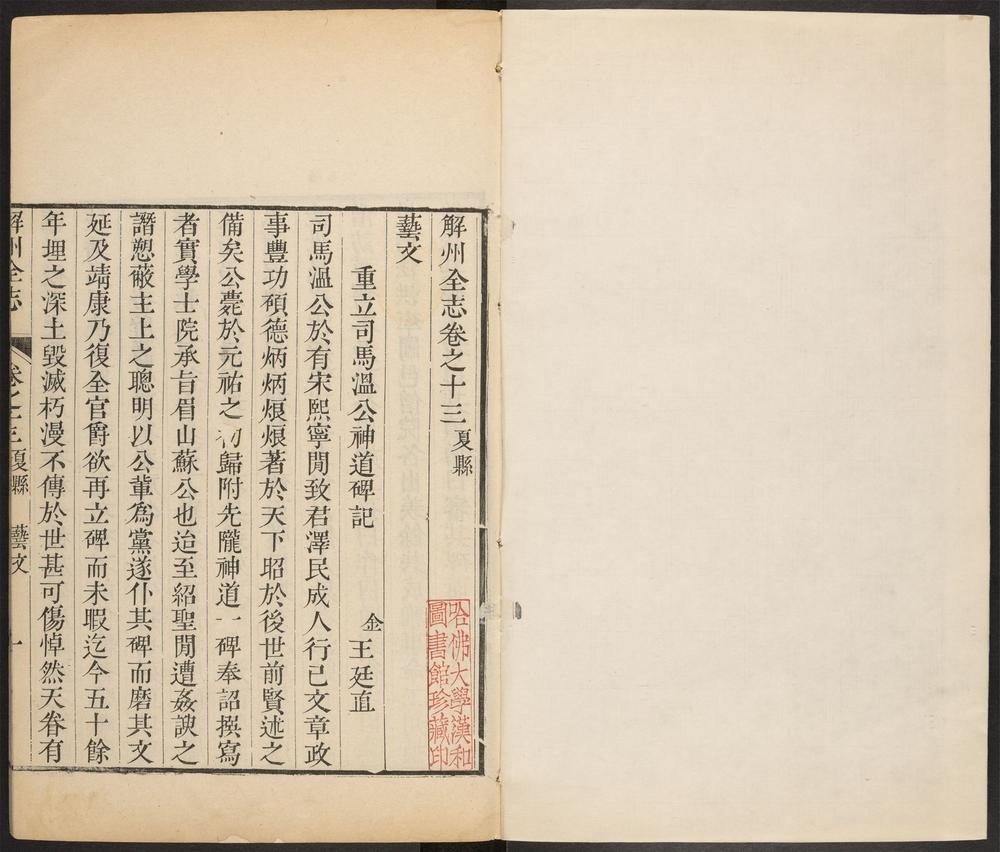 解州全志卷之十三夏縣
藝文
重立司馬溫公神道碑記
金王廷直
司馬溫公於有宋熙寧閒致君澤民成人行己文章政
事豐功碩德炳炳烺烺著於天下昭於後世前賢述之
備矣公薨於元祐之初歸附先隴神道一碑奉詔撰寫
者實學士院承旨眉山蘇公也迨至紹聖閒遭姦諛之
譖愬蔽主上之聰明以公軰為黨遂仆其碑而磨其文
延及靖康乃復全官爵欲再立碑而未暇迄今五十餘
年埋之深土毀滅朽漫不傳於世甚可傷悼然天眷有
解州全志 卷之十三夏縣 藝文 一
哈佛大學漢和
圖書館珍藏印